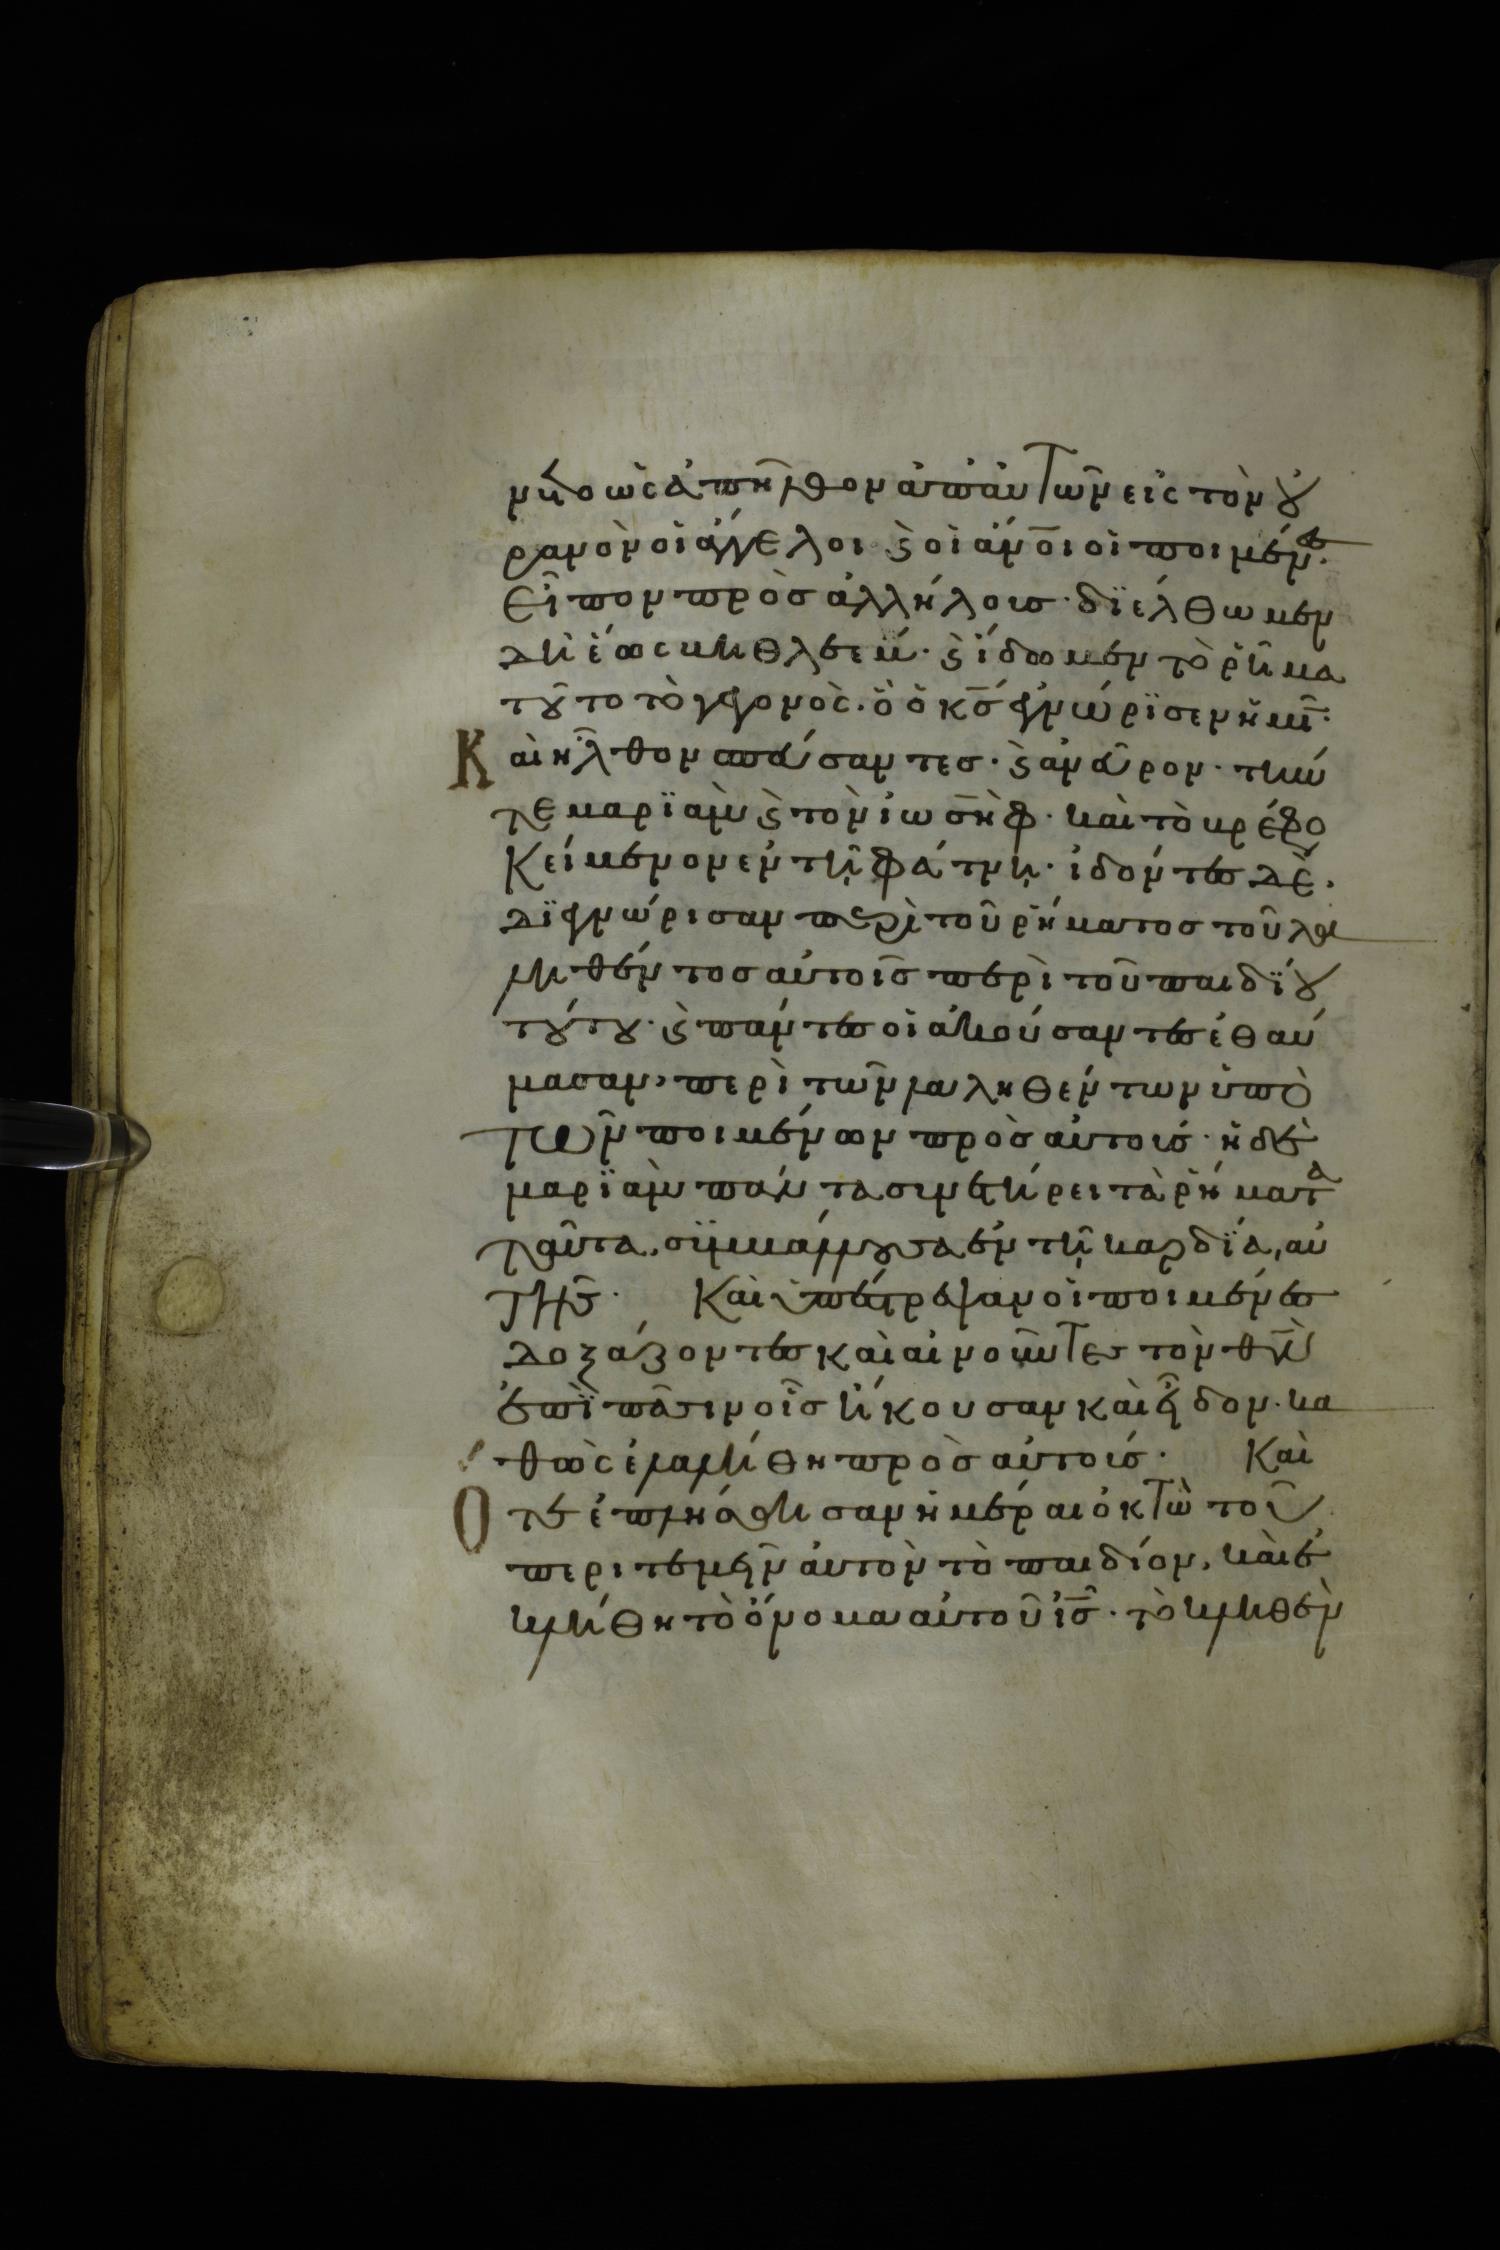 νετο ὡς ἀπῆλθον ἀπ' αὐτῶν εἰς τὸν οὐ
ρανὸν οἱ ἄγγελοι ϛ οἱ ἄνοι οἱ ποιμένες·
εἶπον πρὸς ἀλλήλοις· διέλθωμεν
δὴ ἕως βηθλεέμ· ϛ ἴδωμεν τὸ ῥῆμα
τοῦτο τὸ γεγονὸς· ὃ ὁ κς ἐγνώρισεν ἡμῖν·
Καὶ ἦλθον σπεύσαντες· ϛ ἀνεῦρον· τήν
τε μαριὰμ ϛ τὸν ἰωσὴφ· καὶ τὸ βρέφο
κείμενον ἐν τῇ φάτνῃ· ἰδόντες δὲ·
διεγνώρισαν περὶ τοῦ ῥήματος τοῦ λα
ληθέντος αὐτοῖς περὶ τοῦ παιδίου
τούτου· ϛ πάντες οἱ ἀκούσαντες ἐθαύ
μασαν, περὶ τῶν λαληθέντων ὑπὸ
τῶν ποιμένων πρὸς αὐτούς· ἡ δὲ
μαριὰμ πάντα συνετήρει τὰ ῥήματα
ταῦτα, συμβάλλουσα ἐν τῇ καρδία, αὐ
τῆς· Καὶ ὑπέστρεψαν οἱ ποιμένες
δοξάζοντες καὶ αἰνοῦντες τὸν θν
ἐπὶ πᾶσιν οἷς ἤκουσαν καὶ εἶδον· κα
θὼς ἐλαλήθη πρὸς αὐτούς· Καὶ
Ὅτε ἐπλήσθησαν ἡμέραι ὀκτὼ τοῦ
περιτεμεῖν αὐτὸν τὸ παιδίον, καὶ ἐ
κλήθη τὸ ὄνομα αὐτοῦ ις· τὸ κληθὲν